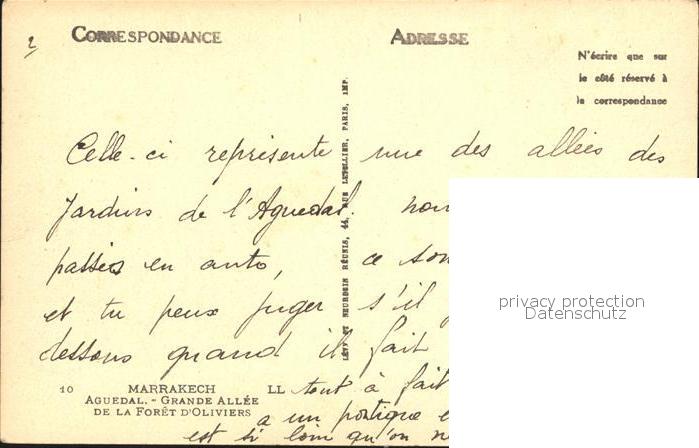 2
CORRESPONDANCE
ADRESSE
N'écrire que sur
le côté réservé à
la correspondance
Celle-ci représente une des allées des
Jardins de l'Aguedal. nou
passées en auto, ce son
et tu peux juger s'il
dessous quand il fait
tout à fait
a un portique e
est si loin qu'on n
LÉVY ET NEURDEIN RÉUNIS, 44, RUE LETELLIER, PARIS, IMP.
10 MARRAKECH LL
AGUEDAL. - GRANDE ALLÉE
DE LA FORÊT D'OLIVIERS
privacy protection
Datenschutz